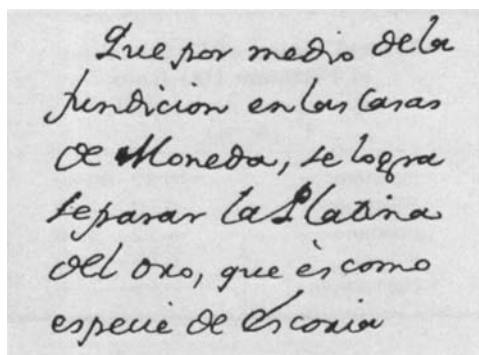 Que por medio de la
fundicion en las Casas
de Moneda, se logra
separar la Platina
del oro, que ès como
especie de Escoria